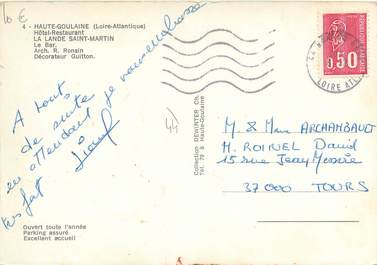 10 €
4 - HAUTE-GOULAINE (Loire-Atlantique)
Hôtel-Restaurant
LA LANDE SAINT-MARTIN
Le Bar.
Arch. R. Ronsin
Décorateur Guitton.
A tout
de suite
en attendant je vous embrasse
très fort
44
Collection DEWINTER Ch
Tél. 79 à Haute-Goulaine
0,50
LOIRE ATL
M & Mme ARCHAMBAULT
M. David
15 rue Jean
37000 TOURS
Ouvert toute l'année
Parking assuré
Excellent accueil